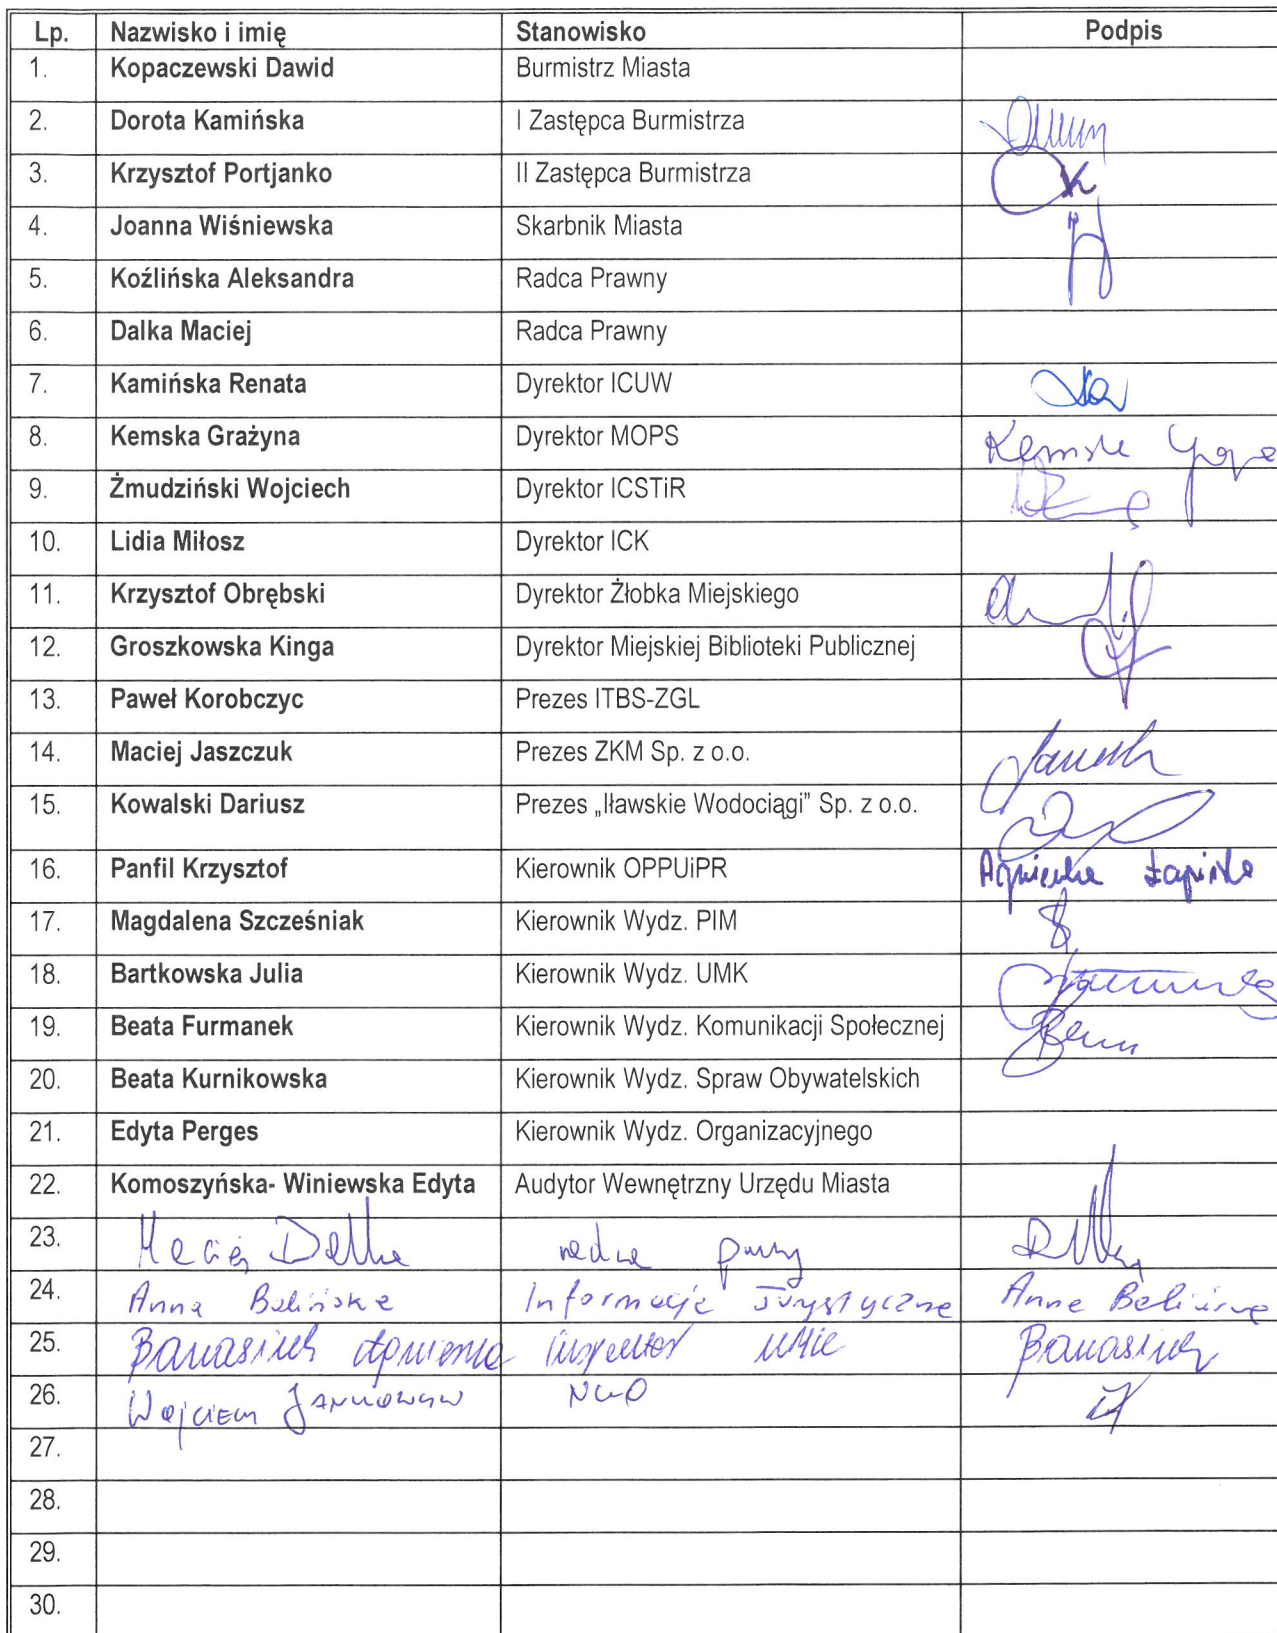 Lp. Nazwisko i imię Stanowisko Podpis
1. Kopaczewski Dawid Burmistrz Miasta
2. Dorota Kamińska I Zastępca Burmistrza
3. Krzysztof Portjanko II Zastępca Burmistrza
4. Joanna Wiśniewska Skarbnik Miasta
5. Koźlińska Aleksandra Radca Prawny
6. Dalka Maciej Radca Prawny
7. Kamińska Renata Dyrektor ICUW
8. Kemska Grażyna Dyrektor MOPS
9. Żmudziński Wojciech Dyrektor ICSTiR
10. Lidia Miłosz Dyrektor ICK
11. Krzysztof Obrębski Dyrektor Żłobka Miejskiego
12. Groszkowska Kinga Dyrektor Miejskiej Biblioteki Publicznej
13. Paweł Korobczyc Prezes ITBS-ZGL
14. Maciej Jaszczuk Prezes ZKM Sp. z o.o.
15. Kowalski Dariusz Prezes „Iławskie Wodociągi” Sp. z o.o.
16. Panfil Krzysztof Kierownik OPPUiPR Agnieszka
17. Magdalena Szcześniak Kierownik Wydz. PIM
18. Bartkowska Julia Kierownik Wydz. UMK
19. Beata Furmanek Kierownik Wydz. Komunikacji Społecznej
20. Beata Kurnikowska Kierownik Wydz. Spraw Obywatelskich
21. Edyta Perges Kierownik Wydz. Organizacyjnego
22. Komoszyńska- Winiewska Edyta Audytor Wewnętrzny Urzędu Miasta
23. Maciej Dalka radca prawny
24. Anna Balińska Informacja Turystyczna Anna Balińska
25. Banasiuk Agnieszka inspektor Banasiuk
26. Wojciech Jankowski
27.
28.
29.
30.